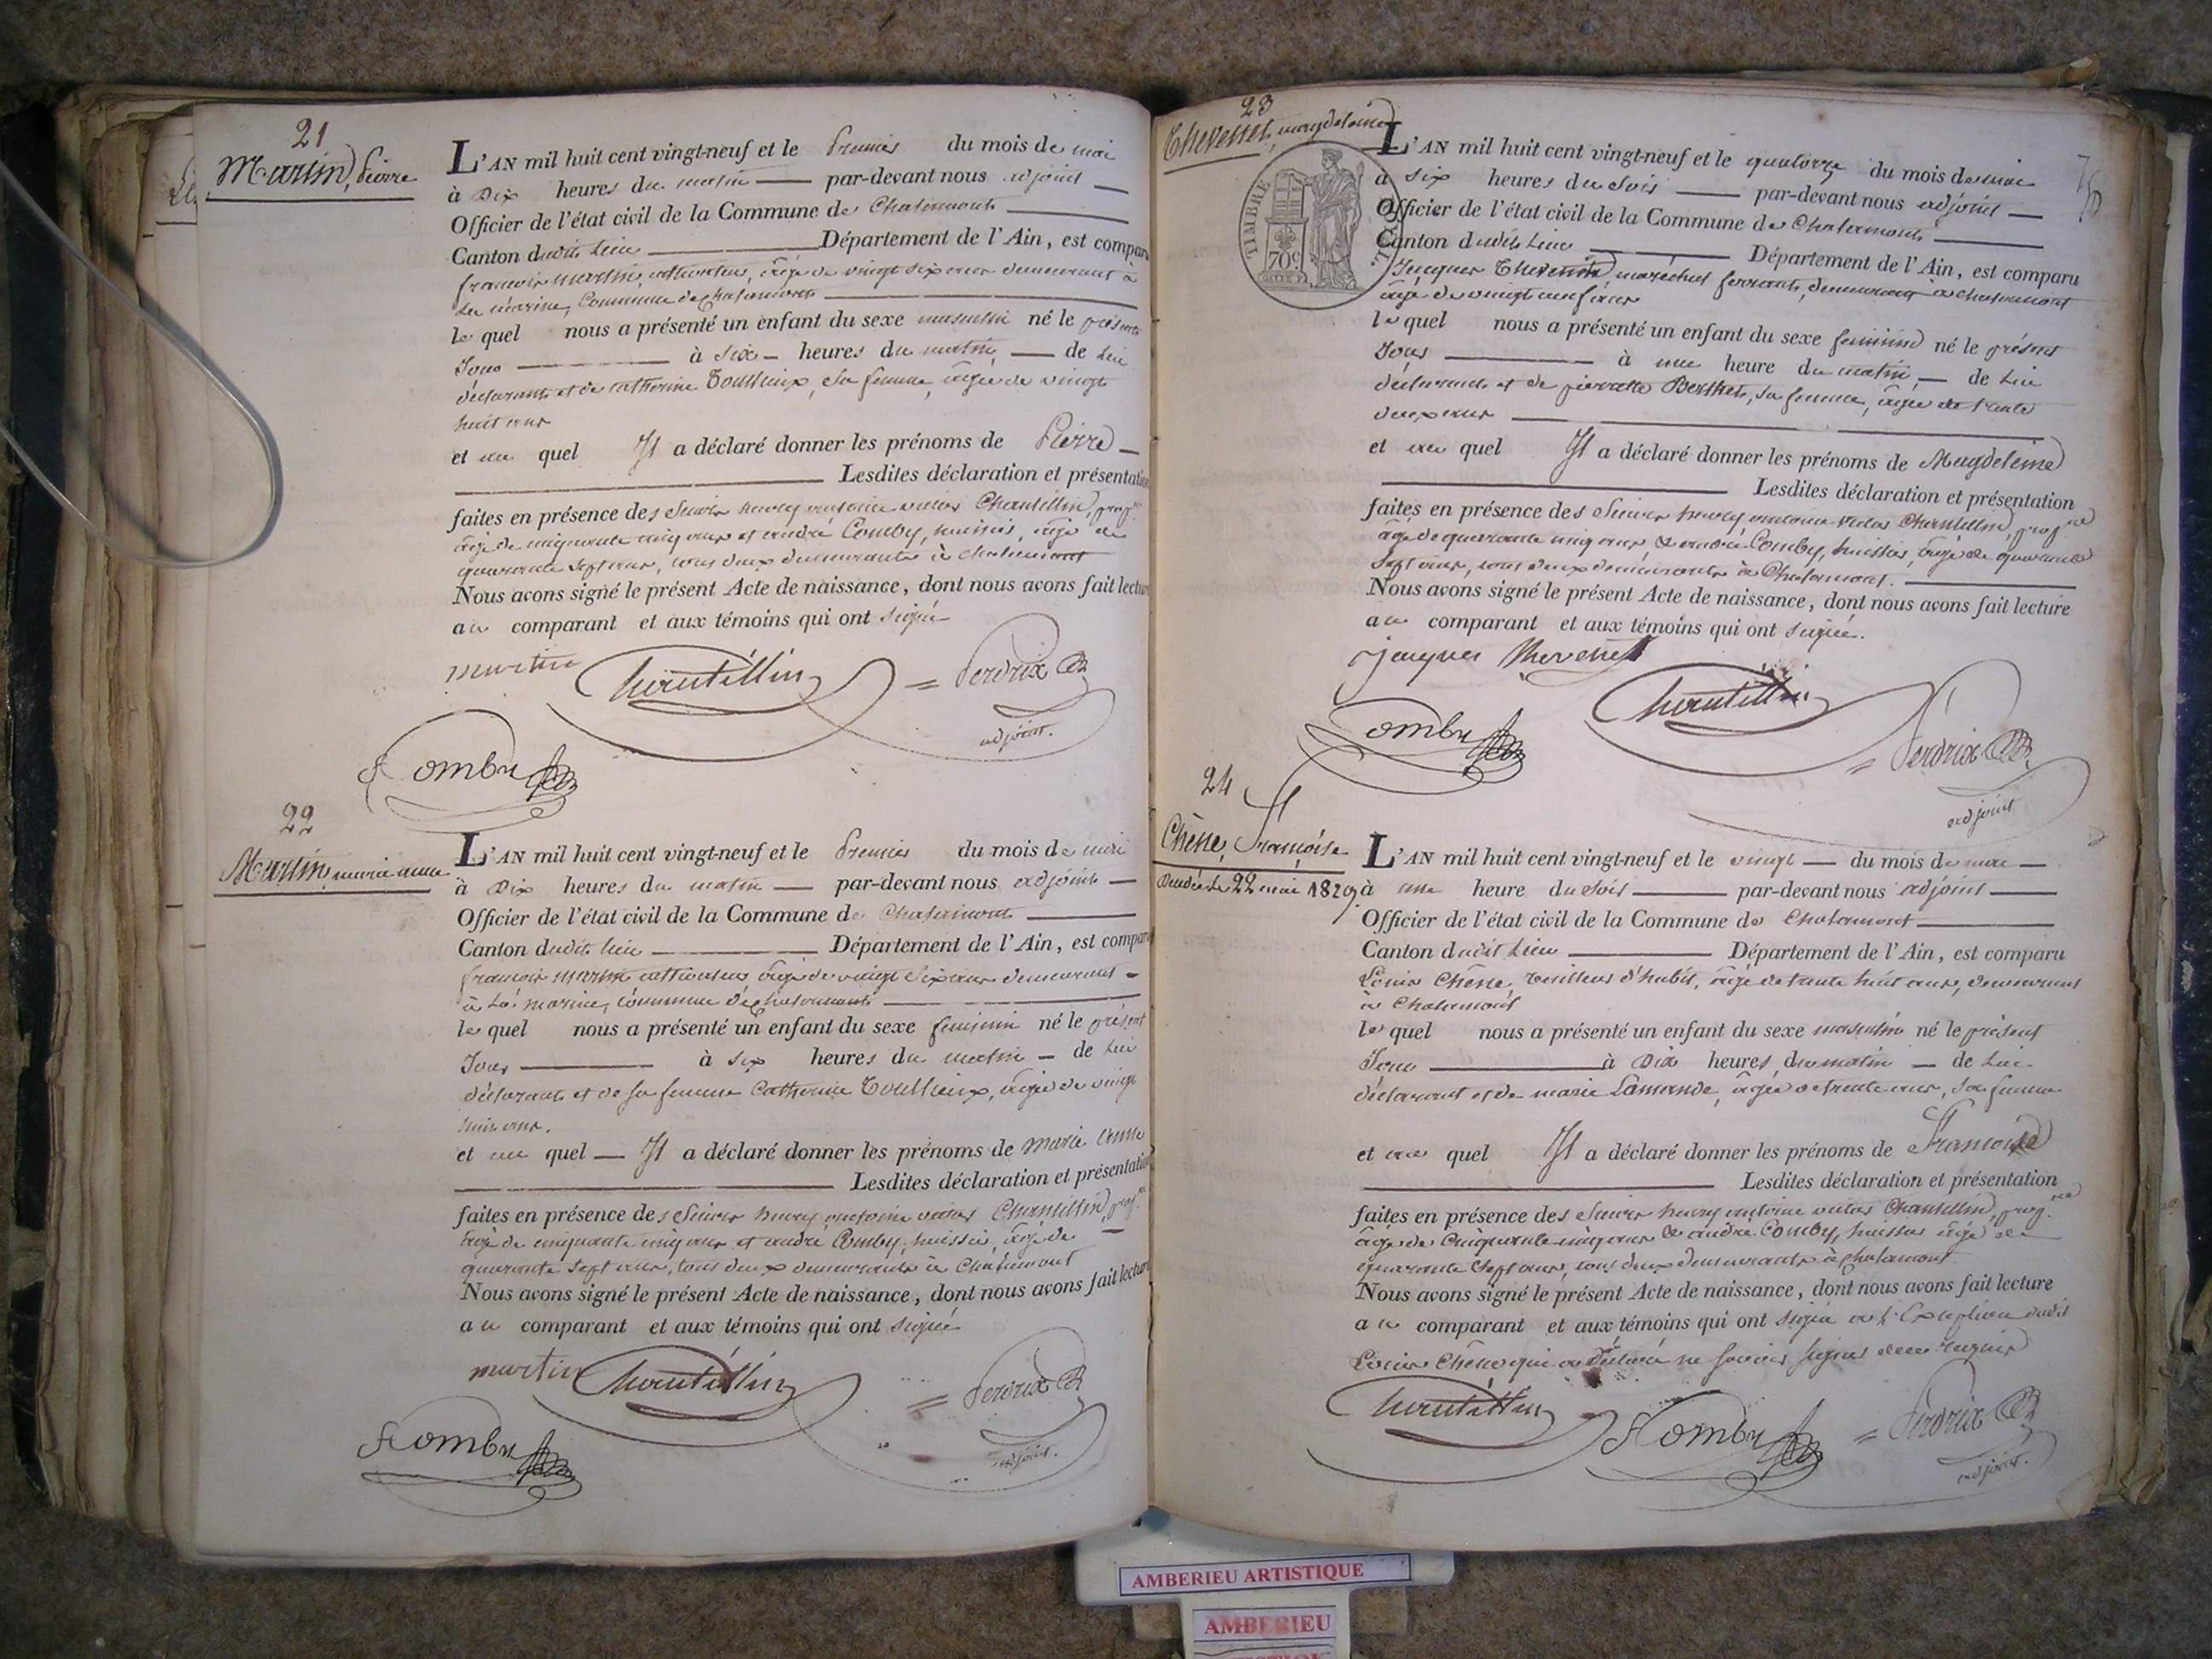 21
Martin, Pierre
L'AN mil huit cent vingt-neuf et le Premier du mois de mai
à Dix heures du matin par-devant nous adjoint
Officier de l'état civil de la Commune de Chalamont
Canton dudit lieu Département de l'Ain, est compar
françois martin, cultivateur, âgé de vingt six ans demeurant à
la marine, Commune de Chalamont
le quel nous a présenté un enfant du sexe masculin né le présent
Jour à Six heures du matin de lui
déclarant et de catherine Toullieux, sa femme, âgée de vingt
huit ans
et au quel Il a déclaré donner les prénoms de Pierre
Lesdites déclaration et présentation
faites en présence des Sieurs henry antoine victor Chantellin, prop.re
âgé de cinquante cinq ans et andré Comby, huissier, âgé de
quarante sept ans, tous deux demeurants à Chalamont
Nous avons signé le présent Acte de naissance, dont nous avons fait lecture
au comparant et aux témoins qui ont signé
martin Chantellin Perdrix
adjoint.
Comby
22
Martin, marie anne
L'AN mil huit cent vingt-neuf et le Premier du mois de mai
à Dix heures du matin par-devant nous adjoint
Officier de l'état civil de la Commune de Chalamont
Canton dudit lieu Département de l'Ain, est compar
françois martin cultivateur âgé de vingt Six ans demeurant
à La marine, Commune de Chalamont
le quel nous a présenté un enfant du sexe feminin né le présent
Jour à six heures du matin de lui
déclarant et de sa femme Catherine Toullieux, âgée de vingt
huit ans.
et au quel Il a déclaré donner les prénoms de marie anne
Lesdites déclaration et présentation
faites en présence des Sieurs henry antoine victor Chantellin, prop.re
âgé de cinquante cinq ans et andré Comby, huissier, âgé de
quarante sept ans, tous deux demeurants à Chalamont
Nous avons signé le présent Acte de naissance, dont nous avons fait lecture
au comparant et aux témoins qui ont signé
martin Chantellin Perdrix
adjoint.
Comby
23
Thevenet, magdeleine
TIMBRE
70c
L'AN mil huit cent vingt-neuf et le quatorze du mois de mai
à six heures du Soir par-devant nous adjoint
Officier de l'état civil de la Commune de Chalamont
Canton dudit Lieu Département de l'Ain, est comparu
Jacques Thevenet maréchal ferrant, demeurant à chalamont
âgé de vingt neuf ans
le quel nous a présenté un enfant du sexe feminin né le présent
Jour à une heure du matin de lui
déclarant et de pierrette Berthet, sa femme, âgée de trente
deux ans
et au quel Il a déclaré donner les prénoms de Magdeleine
Lesdites déclaration et présentation
faites en présence des Sieurs henry antoine victor Chantellin, prop.re
âgé de quarante cinq ans & andré Comby, huissier, âgé de quarante
sept ans, tous deux demeurants à Chalamont.
Nous avons signé le présent Acte de naissance, dont nous avons fait lecture
au comparant et aux témoins qui ont signé.
jacques thevenet
Chantellin
Comby Perdrix
adjoint
24
Chêne, Françoise
Decedée le 22 mai 1829
L'AN mil huit cent vingt-neuf et le vingt du mois de mai
à une heure du Soir par-devant nous adjoint
Officier de l'état civil de la Commune de Chalamont
Canton dudit Lieu Département de l'Ain, est comparu
Louis Chêne, tailleur d'habit, âgé de trente huit ans, demeurant
à Chalamont
le quel nous a présenté un enfant du sexe masculin né le présent
Jour à Dix heures du matin de lui
déclarant et de marie Lamande, âgée de trente ans, sa femme
et au quel Il a déclaré donner les prénoms de Francoise
Lesdites déclaration et présentation
faites en présence des Sieurs henry antoine victor Chantellin, prop.re
âgé de Cinquante cinq ans & andré Comby, huissier âgé de
quarante Sept ans, tous deux demeurants à Chalamont
Nous avons signé le présent Acte de naissance, dont nous avons fait lecture
au comparant et aux témoins qui ont signé à l'Exception dudit
Louis Chêne qui a déclaré ne savoir signer de ce requis
Chantellin Comby Perdrix
adjoint.
AMBERIEU ARTISTIQUE
AMBERIEU